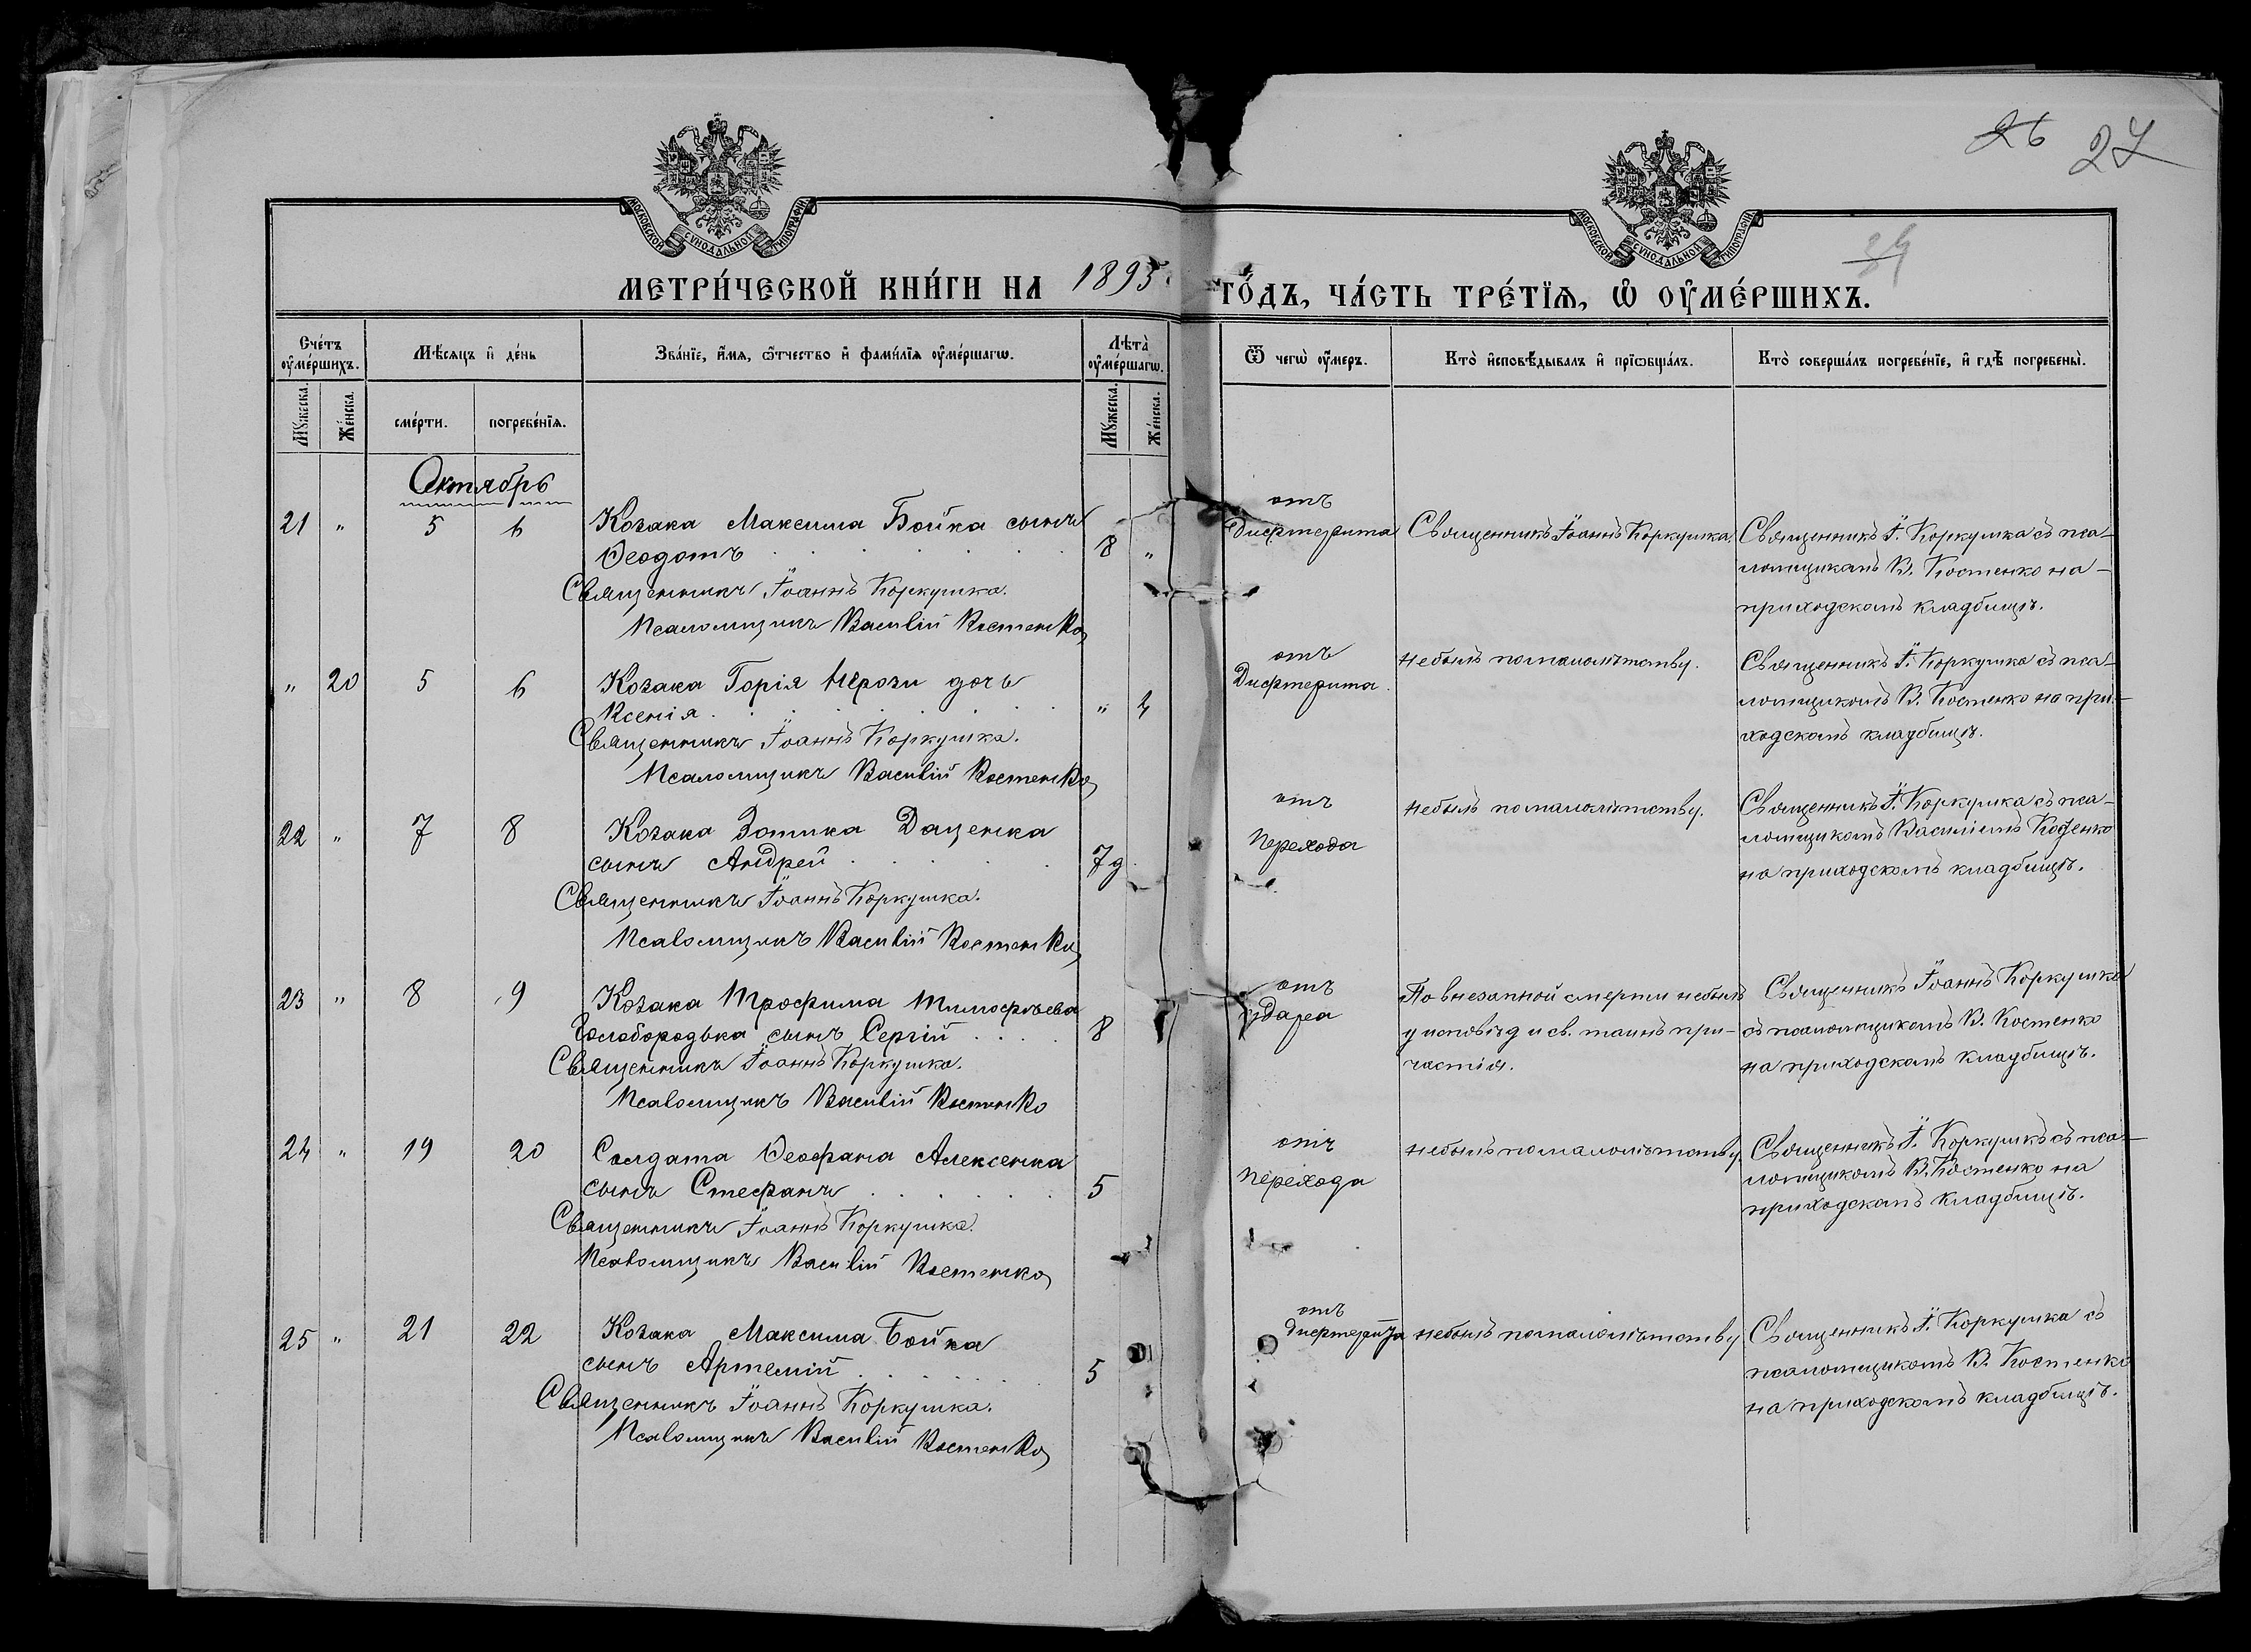 26 27
24
МОСКОВСКОЙ СѴНОДАЛЬНОЙ ТИПОГРАФІИ
МОСКОВСКОЙ СѴНОДАЛЬНОЙ ТИПОГРАФІИ
МЕТРИ́ЧЕСКОЙ КНИ́ГИ НА 1895 ГО́ДЪ, ЧА́СТЬ ТРЕ́ТЇѦ, Ѡ҆ ОУ҆МЕ́РШИХЪ.
Сче́тъ оу҆ме́ршихъ.
Мѣ́сѧцъ и҆ де́нь
Зва́нїе, и҆́мѧ, ѻ҆́тчество и҆ фами́лїѧ оу҆ме́ршагѡ.
Лѣ́та̀ оу҆ме́ршагѡ.
Ѿ чегѡ̀ оу҆́меръ.
Кто̀ и҆сповѣ́дывалъ и҆ прїѡбща́лъ.
Кто̀ соверша́лъ погребе́нїе, и҆ гдѣ̀ погребены̀.
Мꙋ́жеска. Же́нска. сме́рти. погребе́нїѧ. Мꙋ́жеска. Же́нска.
Октябрь
21 " 5 6 Козака Максима Бойка сынъ
Ѳеодотъ 8 "
Священникъ Іоаннъ Коркушка.
Псаломщикъ Василій Костенко
отъ
Дифтерита
Священникъ Іоаннъ Коркушка.
Священникъ І. Коркушка съ пса-
ломщикомъ В. Костенко на
приходскомъ кладбищѣ.
" 20 5 6 Козака Горія дочь
Ксенія " 4
Священникъ Іоаннъ Коркушка.
Псаломщикъ Василій Костенко
отъ
Дифтерита.
небылъ помалолѣтству.
Священникъ І. Коркушка съ пса-
ломщикомъ В. Костенко на при-
ходскомъ кладбищѣ.
22 " 7 8 Козака Зотика Даценка
сынъ Андрей 7 д
Священникъ Іоаннъ Коркушка.
Псаломщикъ Василій Костенко
отъ
Перехода
небылъ помалолѣтству.
Священникъ І. Коркушка съ пса-
ломщикомъ Василіемъ Костенко
на приходскомъ кладбищѣ.
23 " 8 9 Козака Трофима Тимофѣева
Голобородька сынъ Сергій 8
Священникъ Іоаннъ Коркушка.
Псаломщикъ Василій Костенко
отъ
удара
По внезапной смерти небылъ
у исповѣд и св. таинъ при-
частія.
Священникъ Іоаннъ Коркушка
съ псаломщикомъ В. Костенко
на приходскомъ кладбищѣ.
24 " 19 20 Солдата Ѳеофана Алексенка
сынъ Стефанъ 5
Священникъ Іоаннъ Коркушка.
Псаломщикъ Василій Костенко
отъ
перехода
небылъ помалолѣтству.
Священникъ І. Коркушкъ съ пса-
ломщикомъ В. Костенко на
приходскомъ кладбищѣ.
25 " 21 22 Козака Максима Бойка
сынъ Артемій 5
Священникъ Іоаннъ Коркушка.
Псаломщикъ Василій Костенко
отъ
дифтерита
небылъ помалолѣтству
Священникъ І. Коркушка съ
псаломщикомъ В. Костенко
на приходскомъ кладбищѣ.